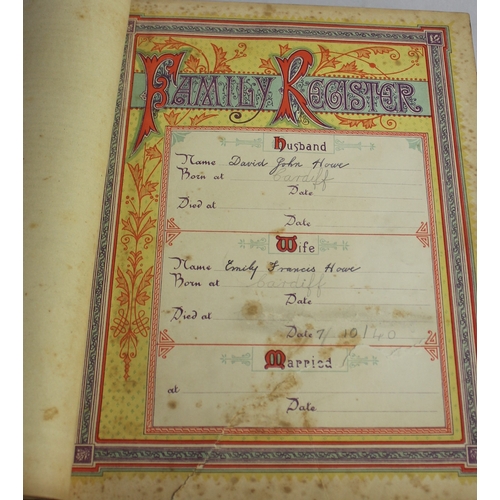 Family Register
Husband
Name David John Howe
Born at Cardiff
Date
Died at
Date
Wife
Name Emily Frances Howe
Born at Cardiff
Date
Died at
Date 7/10/40
Married
at
Date